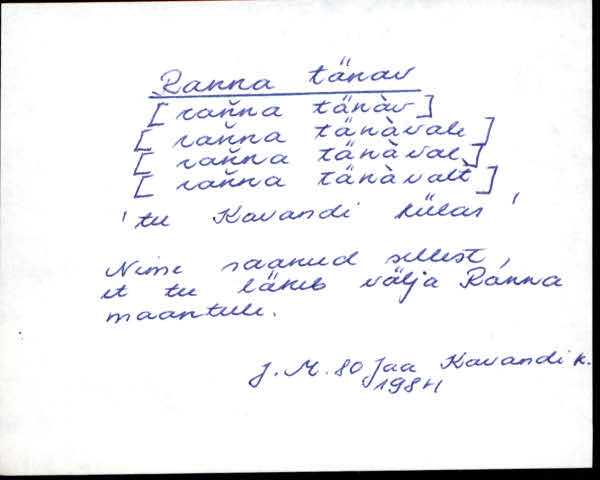 Ranna tänav
[ raňna tänàv ]
[ raňna tänàvale ]
[ raňna tänàval ]
[ raňna tänàvalt ]
' tee Kavandi külas '
Nime saanud sellest,
et tee läheb välja Ranna
maanteele.
J. M. 80 Jaa Kavandi k.
1984